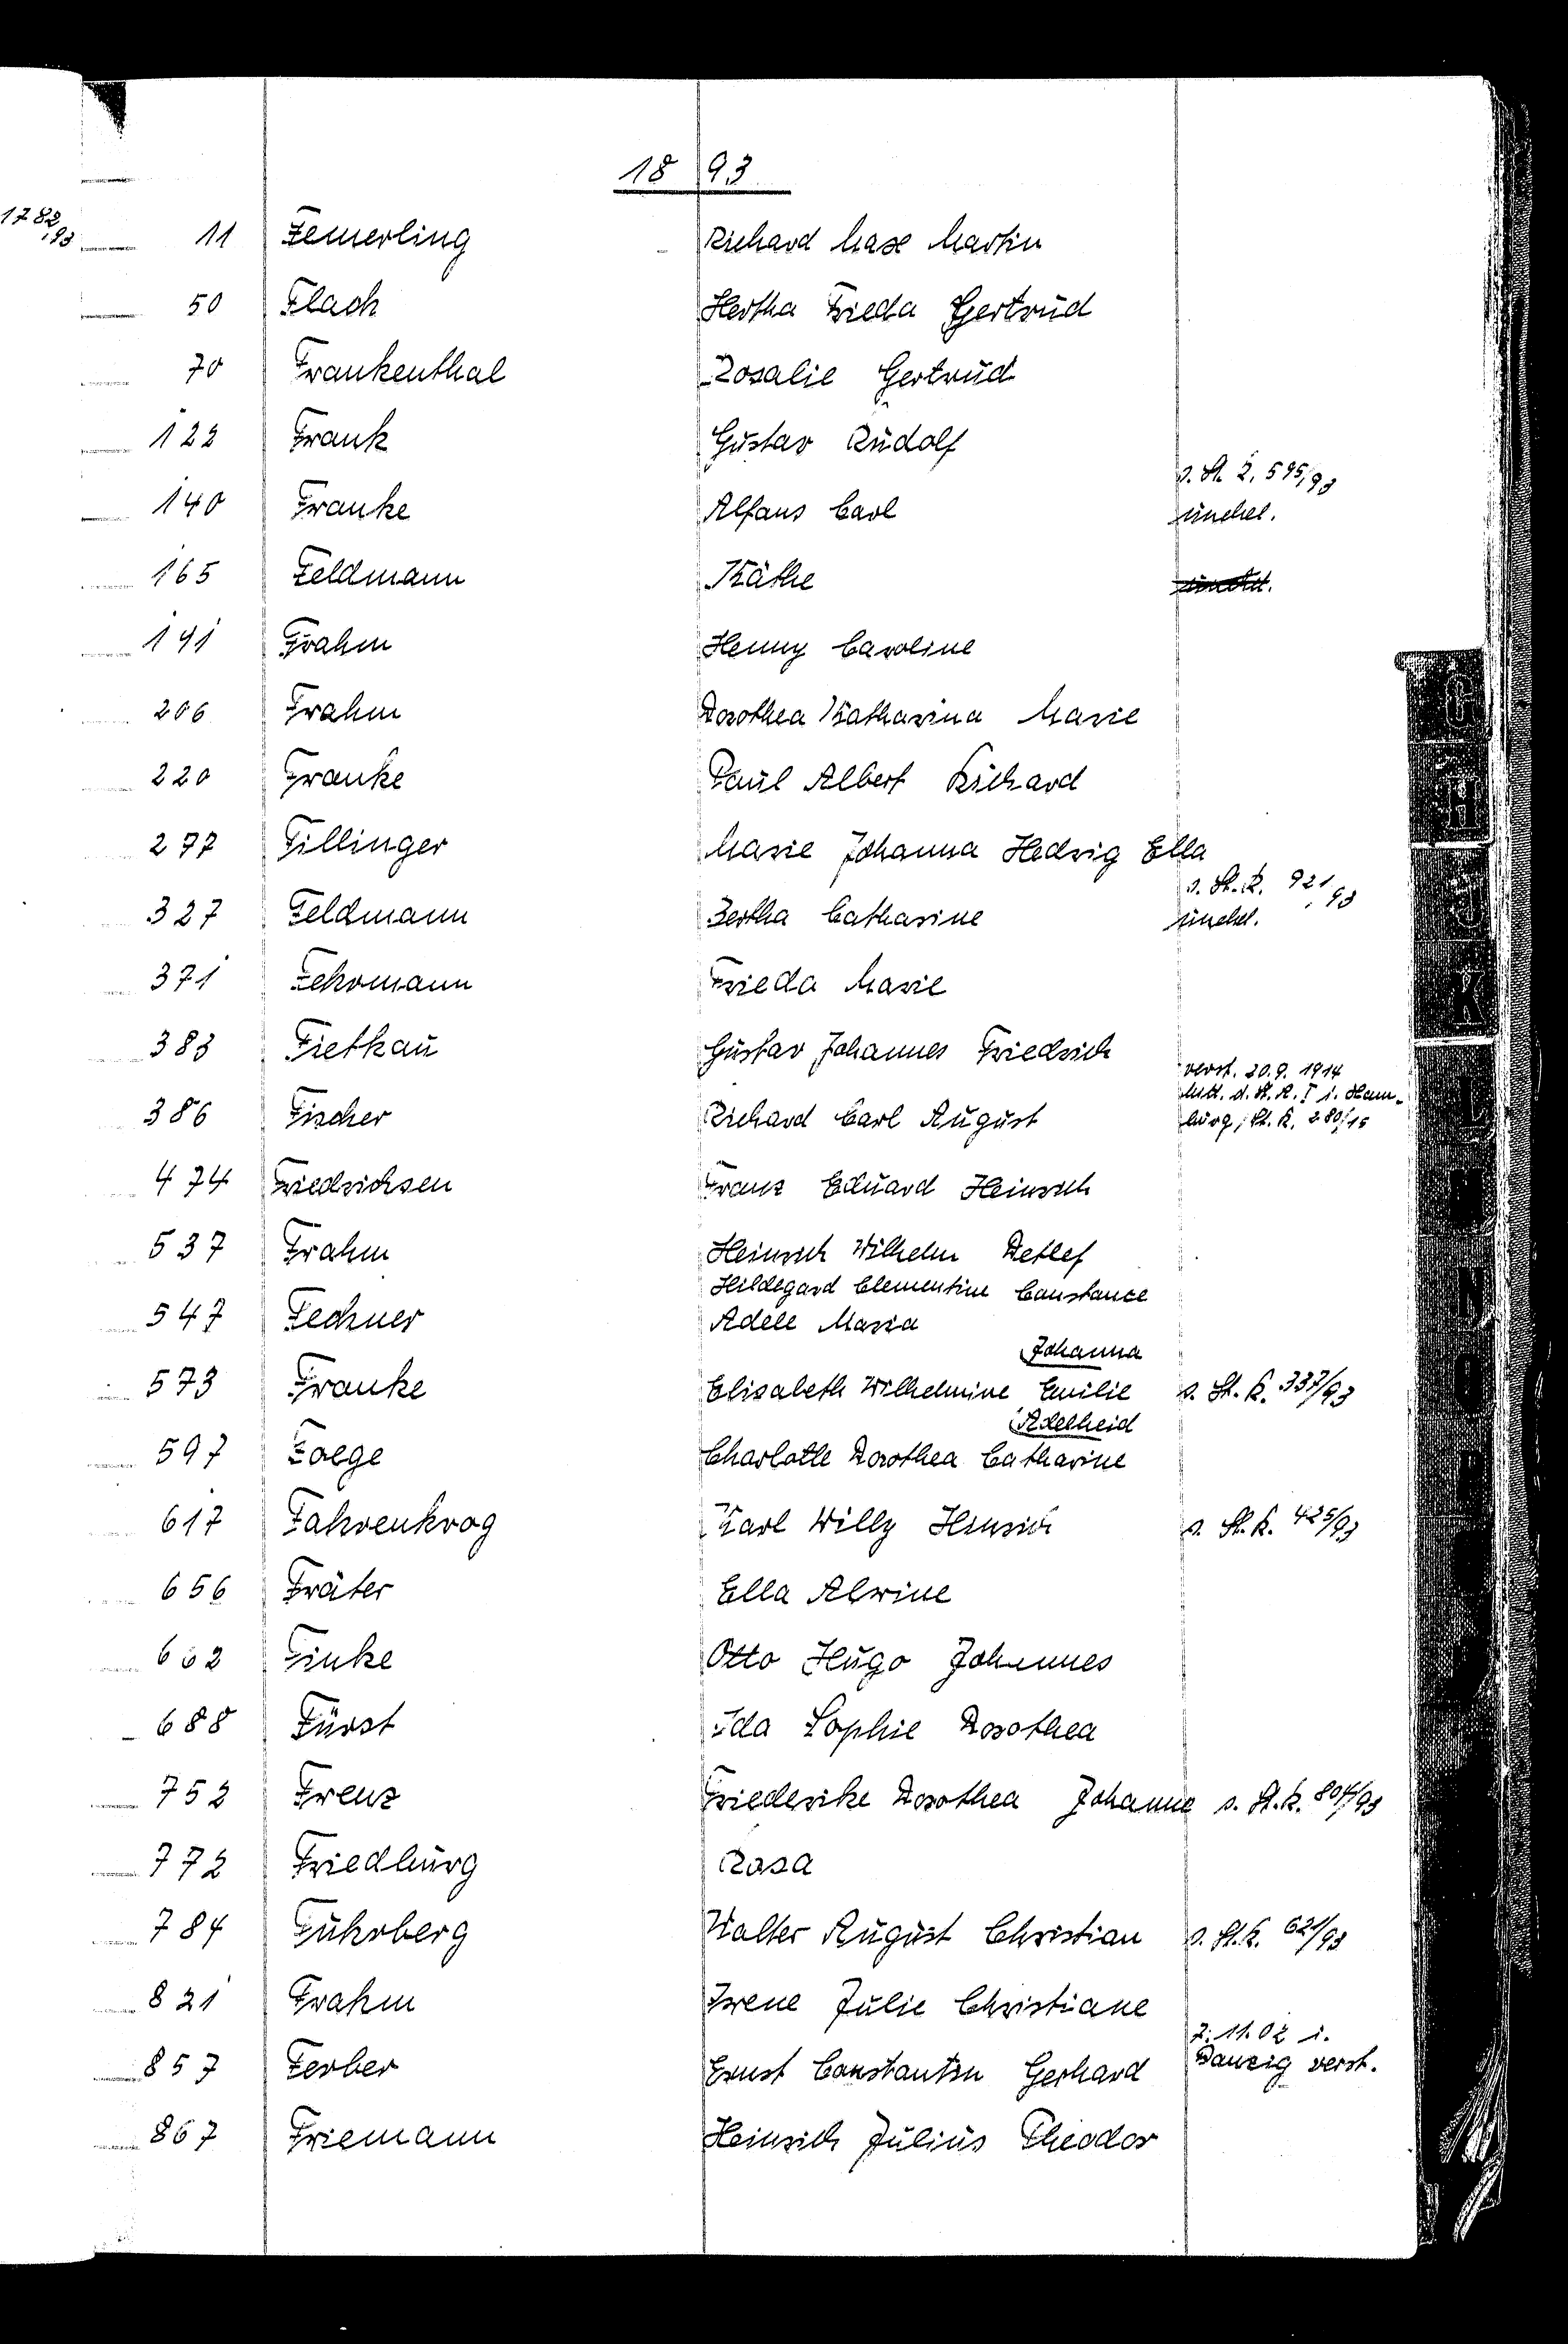 18 93
1782
,93
11 Femerling Richard Max Martin
50 Flach Hertha Frieda Gertrud
70 Frankenthal Rosalie Gertrud
122 Frank Gustav Rudolf
s. St. R. 595/93
140 Franke Alfons Carl unehel.
165 Feldmann Käthe
191 Frahm Henny Caroline
206 Frahm Dorothea Katharina Marie
220 Franke Paul Albert Richard
277 Fillinger Marie Johanna Hedwig Ella
s. St. R. 921,93
327 Feldmann Bertha Catharine unehel.
371 Fehrmann Frieda Marie
383 Fietkau Gustav Johannes Friedrich
verst. 20.9. 1914
Mitt. d. St. A. I i. Ham-
386 Fischer Richard Carl August burg, St. R. 280/15
474 Friedrichsen Franz Eduard Heinrich
537 Frahm Heinrich Wilhelm Detlef
Hildegard Clementine Constance
547 Fechner Adele Maria
Johanna
573 Franke Elisabeth Wilhelmine Emilie s. St. R. 337/93
Adelheid
597 Faege Charlotte Dorothea Catharine
617 Fahrenkrog Karl Willy Heinrich s. St. R. 425/93
656 Fräter Ella Alwine
662 Finke Otto Hugo Johannes
688 Fürst Ida Sophie Dorothea
752 Frenz Friederike Dorothea Johanne s. St. R. 804/93
772 Friedburg Rosa
784 Fuhrberg Walter August Christian s. St. R. 621/93
821 Frahm Irene Julie Christiane
7.11.02 i.
857 Ferber Ernst Constantin Gerhard Danzig verst.
867 Friemann Heinrich Julius Theodor
G
H
J
K
L
M
N
O
P